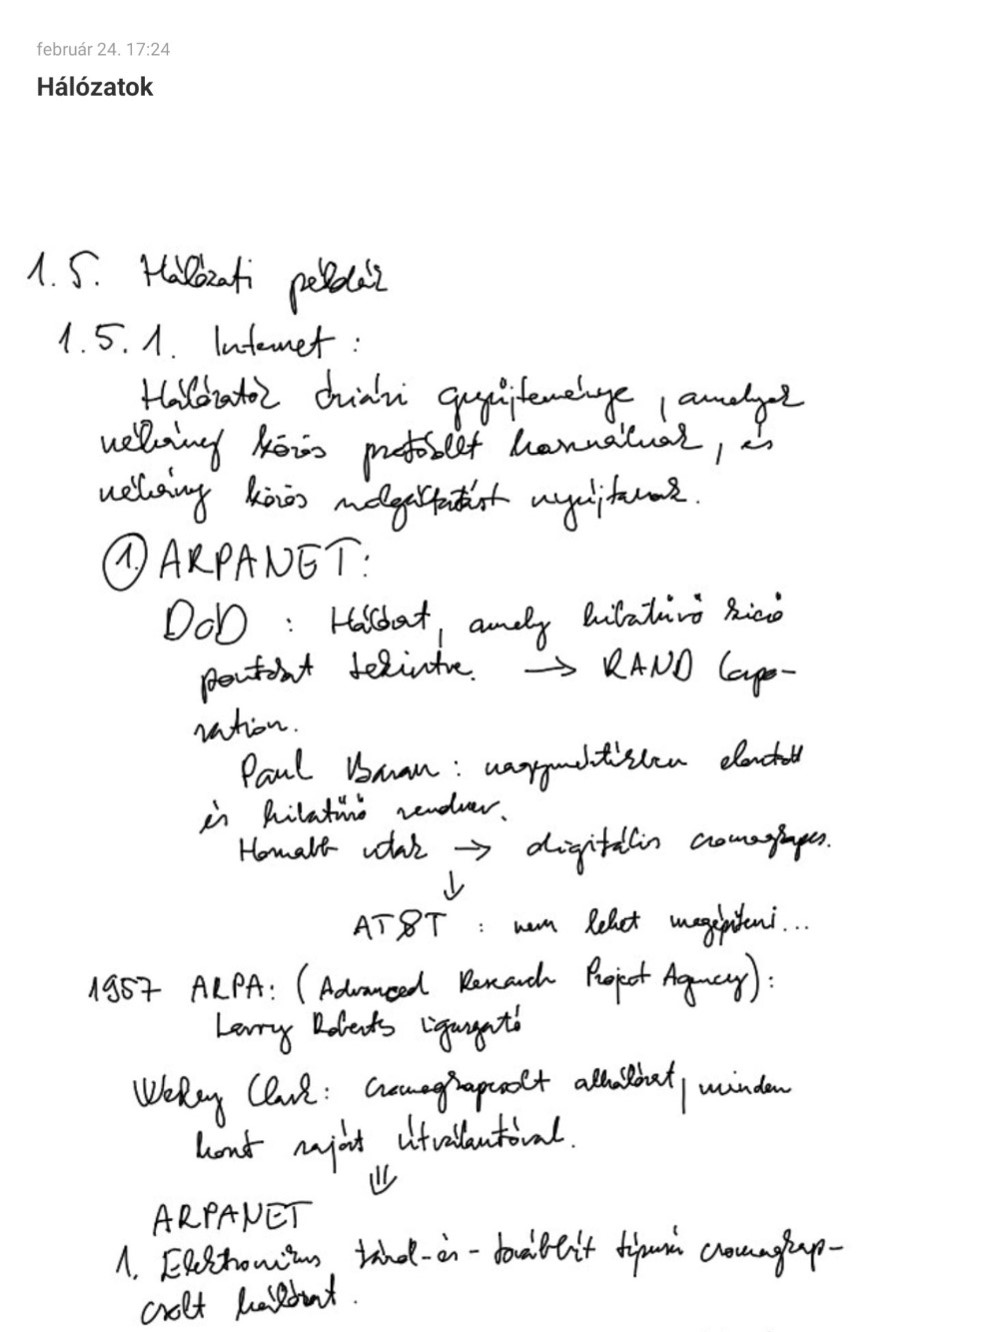 február 24. 17:24
Hálózatok
1.5. Hálózati példák
1.5.1. Internet :
Hálózatok óriási gyűjteménye, amelyek
néhány közös protokollt használnak, és
néhány közös szolgáltatást nyújtanak.
1. ARPANET:
DoD : Hálózat, amely hibatűrő kicső
pontokat tekintve. → RAND Corpo-
ration.
Paul Baran : nagymértékben elosztott
és hibatűrő rendszer.
Hosszabb utak → digitális csomagkapcs.
↓
AT&T : nem lehet megépíteni...
1957 ARPA: (Advanced Research Project Agency):
Larry Roberts igazgató
Wesley Clark: csomagkapcsolt alhálózat, minden
hoszt saját útválasztóval.
⇓
ARPANET
1. Elektronikus tárol-és-továbbít típusú csomagkap-
csolt hálózat.